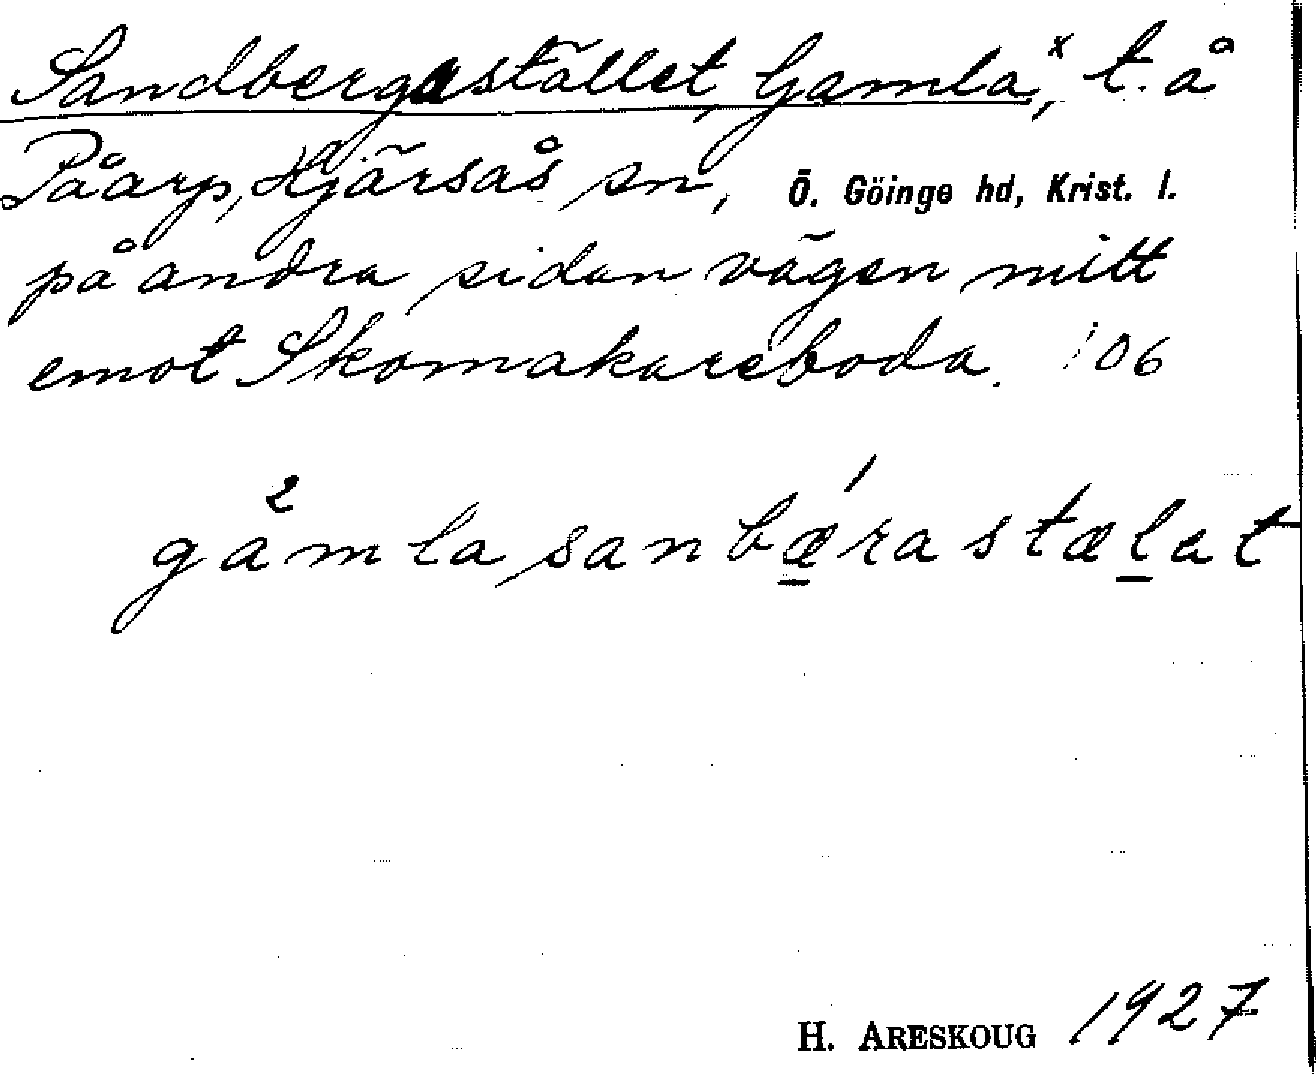 Sandbergastället, Gamla,ˣ t. å
Påarp, Hjärsås sn, Ö. Göinge hd, Krist. l.
på andra sidan vägen mitt
emot Skomakareboda. 106
gå²mla sanbǽ̲rastæl̲at
H. ARESKOUG 1927